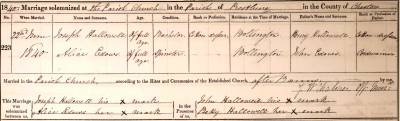 1840. Marriage solemnized at the Parish Church in the Parish of Prestbury in the County of Chester
No. When Married. Name and Surname. Age. Condition. Rank or Profession. Residence at the Time of Marriage. Father's Name and Surname. Rank or Profession of Father.
223 22nd June 1840 Joseph Hallowell Of full age Bachelor Bollington Henry Hallowell
Alice Esdnor Of full age Spinster Bollington
Married in the Parish Church according to the Rites and Ceremonies of the Established Church, after Banns by me,
This Marriage was solemnized between us, Joseph Hallowell his x mark In the Presence of us, John Hallowell his x mark
her x mark Betty Hallowell her x mark